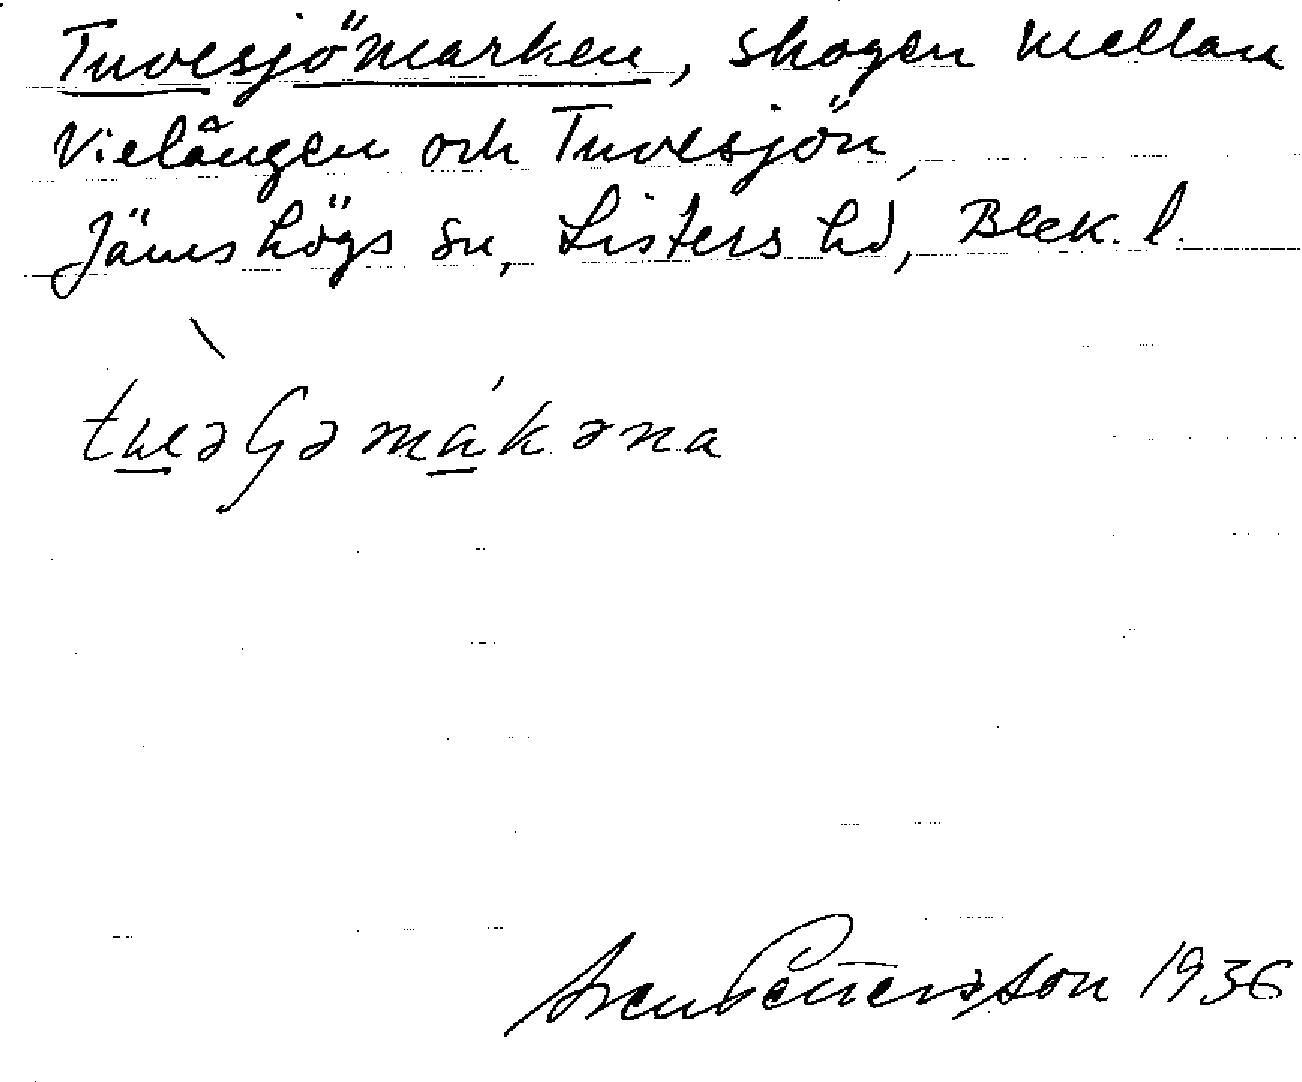 Tuvesjömarken, skogen mellan
Vielången och Tuvesjön,
Jämshögs sn, Listers hd, Blek. l.
Sven Pettersson 1936